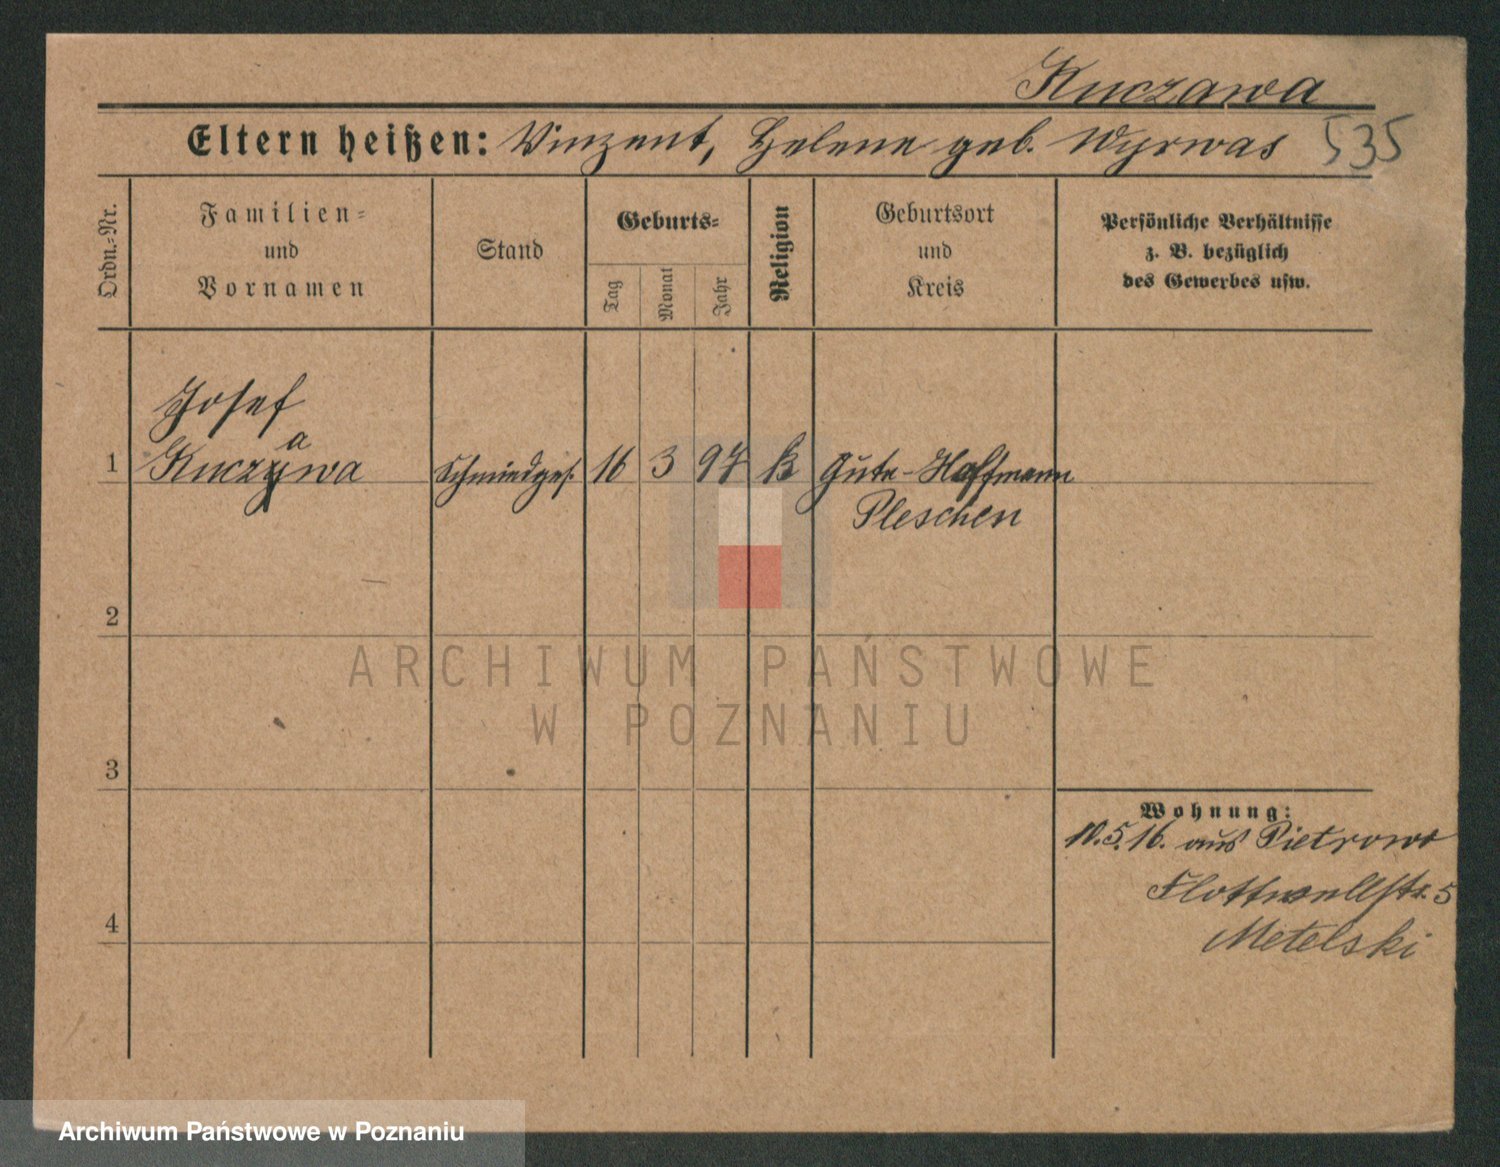 Kuczawa
Eltern heißen: Vinzent, Helene geb. Wyrwas 535
Ordn.-Nr.
Familien-
und
Vornamen
Stand
Geburts-
Tag
Monat
Jahr
Religion
Geburtsort
und
Kreis
Persönliche Verhältnisse
z. B. bezüglich
des Gewerbes usw.
Josef
a
1 Kuczywa Schmiedges. 16 3 97 k Gute-Hoffmann
Pleschen
2
ARCHIWUM PAŃSTWOWE
W POZNANIU
3
Wohnung:
10.5.16. aus Pietrowo
Flottwellstr. 5
4
Metelski
Archiwum Państwowe w Poznaniu